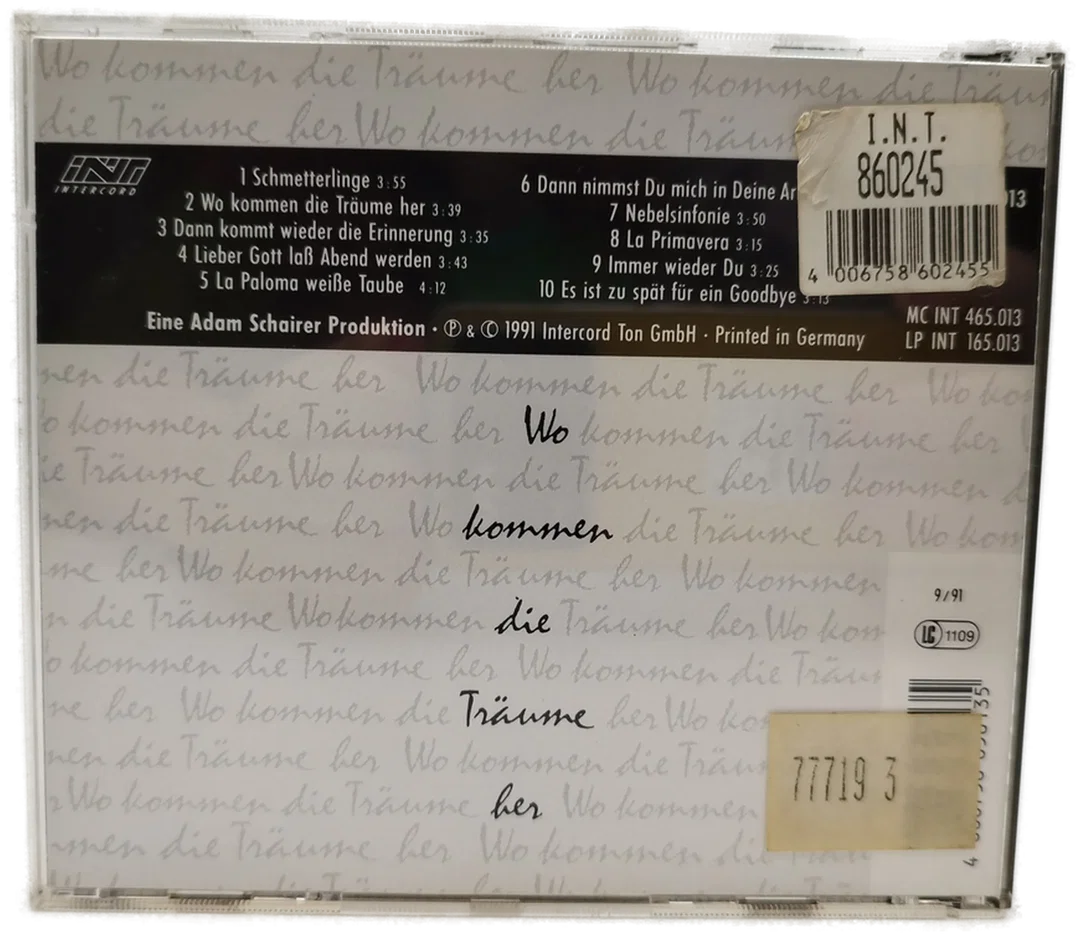 Wo kommen die Träume her Wo kommen die
die Träume her Wo kommen die
INT
INTERCORD
1 Schmetterlinge 3:55
2 Wo kommen die Träume her 3:39
3 Dann kommt wieder die Erinnerung 3:35
4 Lieber Gott laß Abend werden 3:43
5 La Paloma weiße Taube 4:12
6 Dann nimmst Du mich in Deine
7 Nebelsinfonie 3:50
8 La Primavera 3:15
9 Immer wieder Du 3:25
10 Es ist zu spät für ein Goodbye 3:13
I.N.T.
860245
4 006758 602455
13
MC INT 465.013
LP INT 165.013
Eine Adam Schairer Produktion · Ⓟ & © 1991 Intercord Ton GmbH · Printed in Germany
die Träume her Wo kommen die Träume her Wo
kommen die Träume her Wo kommen die Träume her
Träume her Wo kommen die Träume her Wo kommen
die Träume her Wo kommen die Träume her Wo
her Wo kommen die Träume her Wo kommen
die Träume Wo kommen die Träume her Wo
kommen die Träume her Wo kommen die
her Wo kommen die Träume her Wo
die Träume her Wo kommen die
Wo kommen die Träume her Wo kommen
die Träume her Wo kommen die
9/91
LC 1109
77719 3